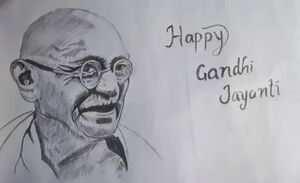 Happy
Gandhi
Jayanti